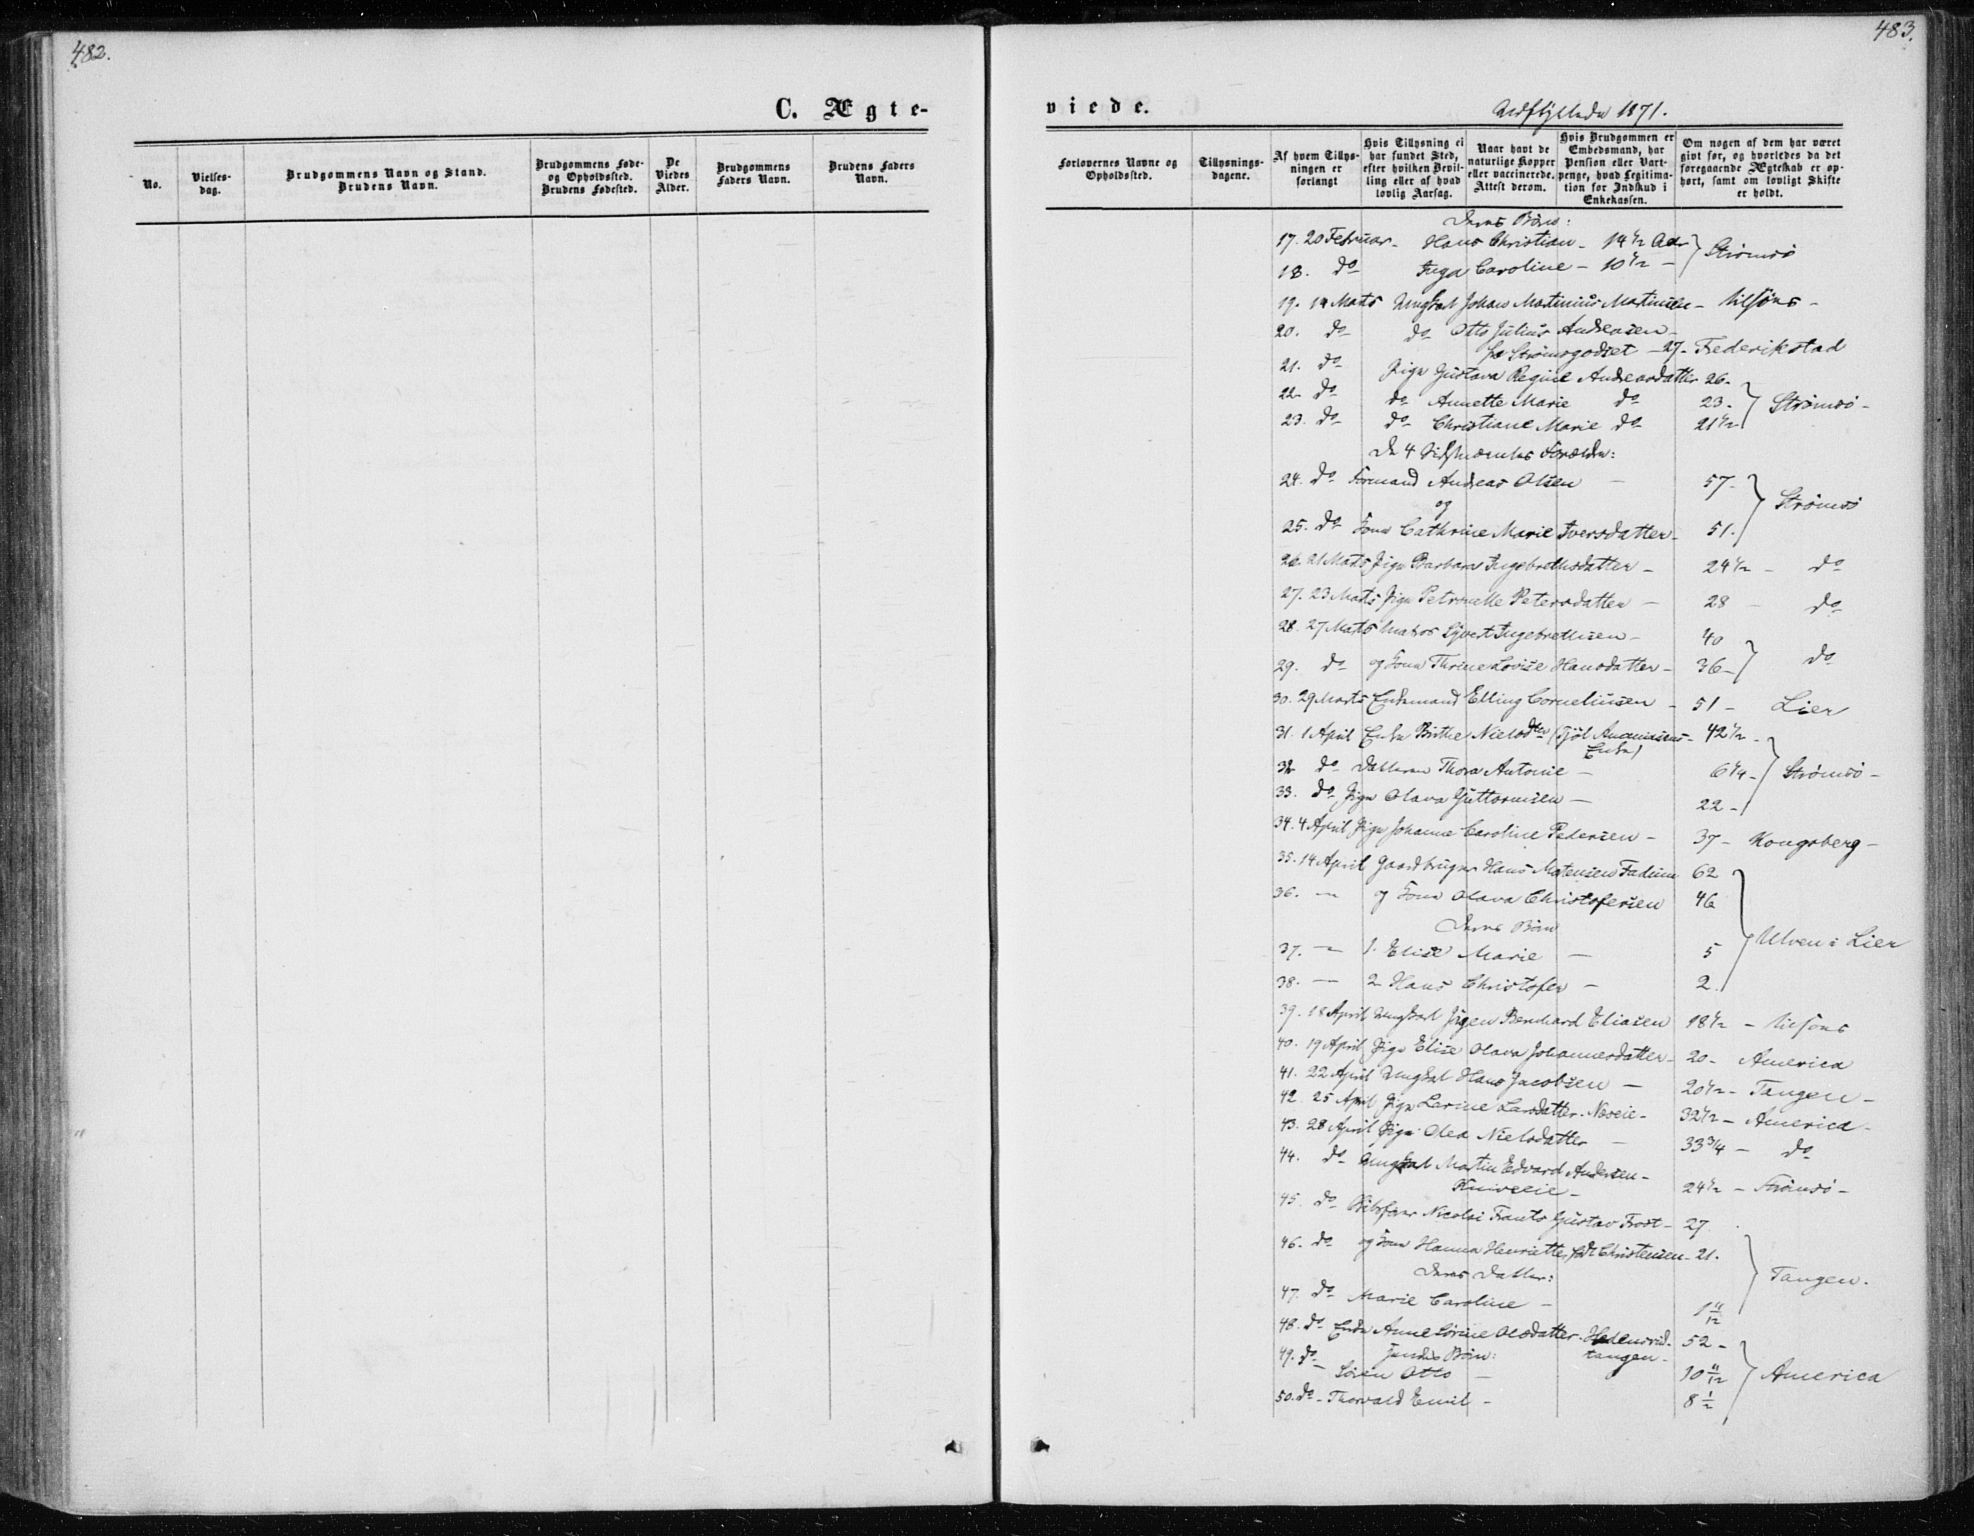 482.
C. Ægte-
No.
Vielses-
dag.
Brudgommens Navn og Stand.
Brudens Navn.
Brudgommens Føde-
og Opholdssted.
Brudens Fødested.
De
Viedes
Alder.
Brudgommens
Faders Navn.
Brudens Faders
Navn.
483.
viede.
Udflyttede 1871.
Forlovernes Navne og
Opholdssted.
Tillysnings-
dagene.
Af hvem Tillys-
ningen er
forlangt
Hvis Tillysning ei
har fundet Sted,
efter hvilken Bevil-
ling eller af hvad
lovlig Aarsag.
Naar havt de
naturlige Kopper
eller vaccinerede.
Attest derom.
Hvis Brudgommen er
Embedsmand, har
Pension eller Vart-
penge, hvad Legitima-
tion for Indskud i
Enkekassen.
Om nogen af dem har været
givt før, og hvorledes da det
foregaaende Ægteskab er op-
hørt, samt om lovligt Skifte
er holdt.
Deres Børn:
17. 20 Februar - Hans Christian - 14 1/2 Aar } Strømsø
18. do Inga Caroline - 10 1/2 -
19. 14 Marts Ungkarl Johan Martinius Martinsen -
20. do do Otto Julius Andreasen -
fra Strømsgodset - 27 - Frederikstad
21. do Pige Gustava Regine Andreasdatter 26 -
22. do do Annette Marie do 23 - } Strømsø -
23. do do Christiane Marie do 21 1/2
De 4 Sidstnævntes Forældre:
24. do Formand Andreas Olsen - 57 - } Strømsø
og
25. do Kone Cathrine Marie Iversdatter - 51.
26. 21 Marts Pige Barbara Ingebrethsdatter - 24 1/2 - do
27. 23 Marts Pige Petronille Petersdatter - 28 - do
28. 27 Marts Matros Syvert Ingebrethsen - 40
29. do og Kone Thrine Lovise Hansdatter - 36 - } do
30. 29 Marts Enkemand Elling Corneliusen - 51 - Lier
31. 1 April Enke Birthe Nielsdtr ( - 42 1/2 -
Enke)
32 do Datteren Thora Antonie - 6 1/4 - } Strømsø -
33. do Pige Olava Guttormsen - 22 -
34. 4 April Pige Johanne Caroline Pedersen - 37 - Kongsberg -
35. 14 April Gaardbruger Hans Mortensen Fadum 62
36. - og Kone Olava Christofersen 46
Deres Børn
37. - 1. Elise Marie - 5 } Ulven i Lier
38. - 2 Hans Christofer - 2.
39. 18 April Ungkarl Jørgen Bernhard Eliasen 18 1/2 -
40. 19 April Pige Elise Olava Johannesdatter - 20 - America
41. 22 April Ungkarl Hans Jacobsen - 20 1/2 - Tangen -
42. 25 April Pige Larine Larsdatter. - 32 1/2 - America -
43. 28 April Pige Olea Nielsdatter - 33 3/4 - do
44. do Ungkarl Martin Edvard Andersen -
- 24 1/2 - Strømsø -
45. do Nicolai Frants Gustav Frost - 27
46. do og Kone Hanna Henriette, født Christensen - 21.
Deres Datter: } Tangen.
47. do Marie Caroline - 1 11/12
48. do Enke Anne Sørine Olsdatter. 52 -
tangen -
49. do Hendes Børn:
Søren Otto - 10 11/12 } America
50. do - Thorvald Emil - 8 1/2